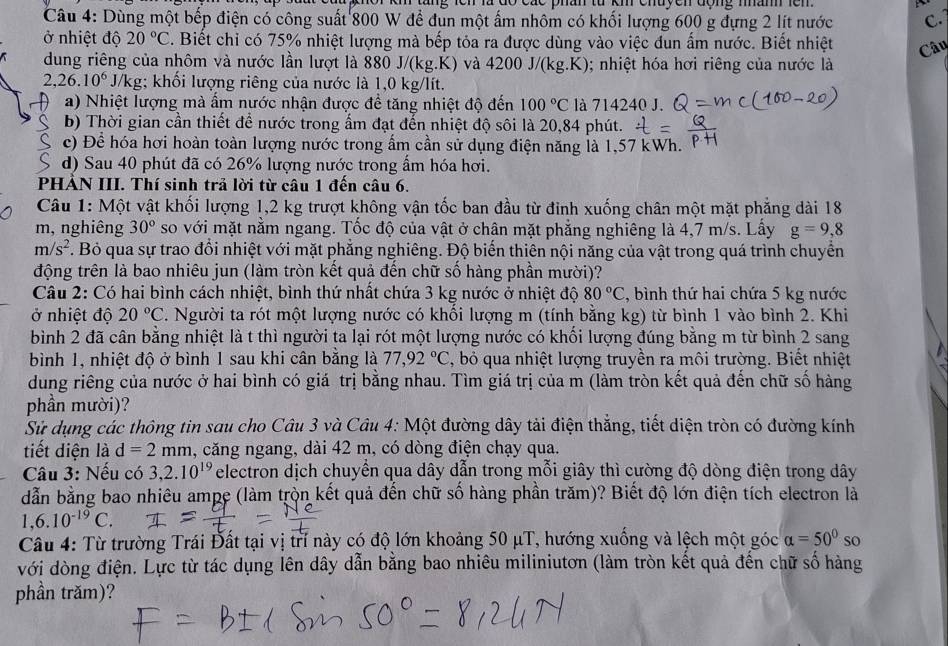 Câu 4: Dùng một bếp điện có công suất 800 W để đun một ấm nhôm có khối lượng 600 g đựng 2 lít nước
C.
ở nhiệt độ 20 ºC. Biết chỉ có 75% nhiệt lượng mà bếp tỏa ra được dùng vào việc đun ấm nước. Biết nhiệt
Câu
dung riêng của nhôm và nước lần lượt là 880 J/(kg.K) và 4200 J/(kg.K); nhiệt hóa hơi riêng của nước là
2,26.10⁶ J/kg; khối lượng riêng của nước là 1,0 kg/lít.
Đ a) Nhiệt lượng mà ấm nước nhận được để tăng nhiệt độ đến 100 ºC là 714240 J. Q = mc(100-20)
S b) Thời gian cần thiết để nước trong ấm đạt đến nhiệt độ sôi là 20,84 phút. t = Q / P.H
S c) Để hóa hơi hoàn toàn lượng nước trong ấm cần sử dụng điện năng là 1,57 kWh.
S d) Sau 40 phút đã có 26% lượng nước trong ấm hóa hơi.
PHẦN III. Thí sinh trả lời từ câu 1 đến câu 6.
Câu 1: Một vật khối lượng 1,2 kg trượt không vận tốc ban đầu từ đỉnh xuống chân một mặt phẳng dài 18
m, nghiêng 30º so với mặt nằm ngang. Tốc độ của vật ở chân mặt phẳng nghiêng là 4,7 m/s. Lấy g = 9,8
m/s². Bỏ qua sự trao đổi nhiệt với mặt phẳng nghiêng. Độ biến thiên nội năng của vật trong quá trình chuyển
động trên là bao nhiêu jun (làm tròn kết quả đến chữ số hàng phần mười)?
Câu 2: Có hai bình cách nhiệt, bình thứ nhất chứa 3 kg nước ở nhiệt độ 80 ºC, bình thứ hai chứa 5 kg nước
ở nhiệt độ 20 ºC. Người ta rót một lượng nước có khối lượng m (tính bằng kg) từ bình 1 vào bình 2. Khi
bình 2 đã cân bằng nhiệt là t thì người ta lại rót một lượng nước có khối lượng đúng bằng m từ bình 2 sang
bình 1, nhiệt độ ở bình 1 sau khi cân bằng là 77,92 ºC, bỏ qua nhiệt lượng truyền ra môi trường. Biết nhiệt
dung riêng của nước ở hai bình có giá trị bằng nhau. Tìm giá trị của m (làm tròn kết quả đến chữ số hàng
phần mười)?
Sử dụng các thông tin sau cho Câu 3 và Câu 4: Một đường dây tải điện thẳng, tiết diện tròn có đường kính
tiết diện là d = 2 mm, căng ngang, dài 42 m, có dòng điện chạy qua.
Câu 3: Nếu có 3,2.10¹⁹ electron dịch chuyển qua dây dẫn trong mỗi giây thì cường độ dòng điện trong dây
dẫn bằng bao nhiêu ampe (làm tròn kết quả đến chữ số hàng phần trăm)? Biết độ lớn điện tích electron là
1,6.10⁻¹⁹ C. I = q / t = Ne / t
Câu 4: Từ trường Trái Đất tại vị trí này có độ lớn khoảng 50 μT, hướng xuống và lệch một góc α = 50⁰ so
với dòng điện. Lực từ tác dụng lên dây dẫn bằng bao nhiêu miliniutơn (làm tròn kết quả đến chữ số hàng
phần trăm)?
F = BIl Sin 50° = 8,24N